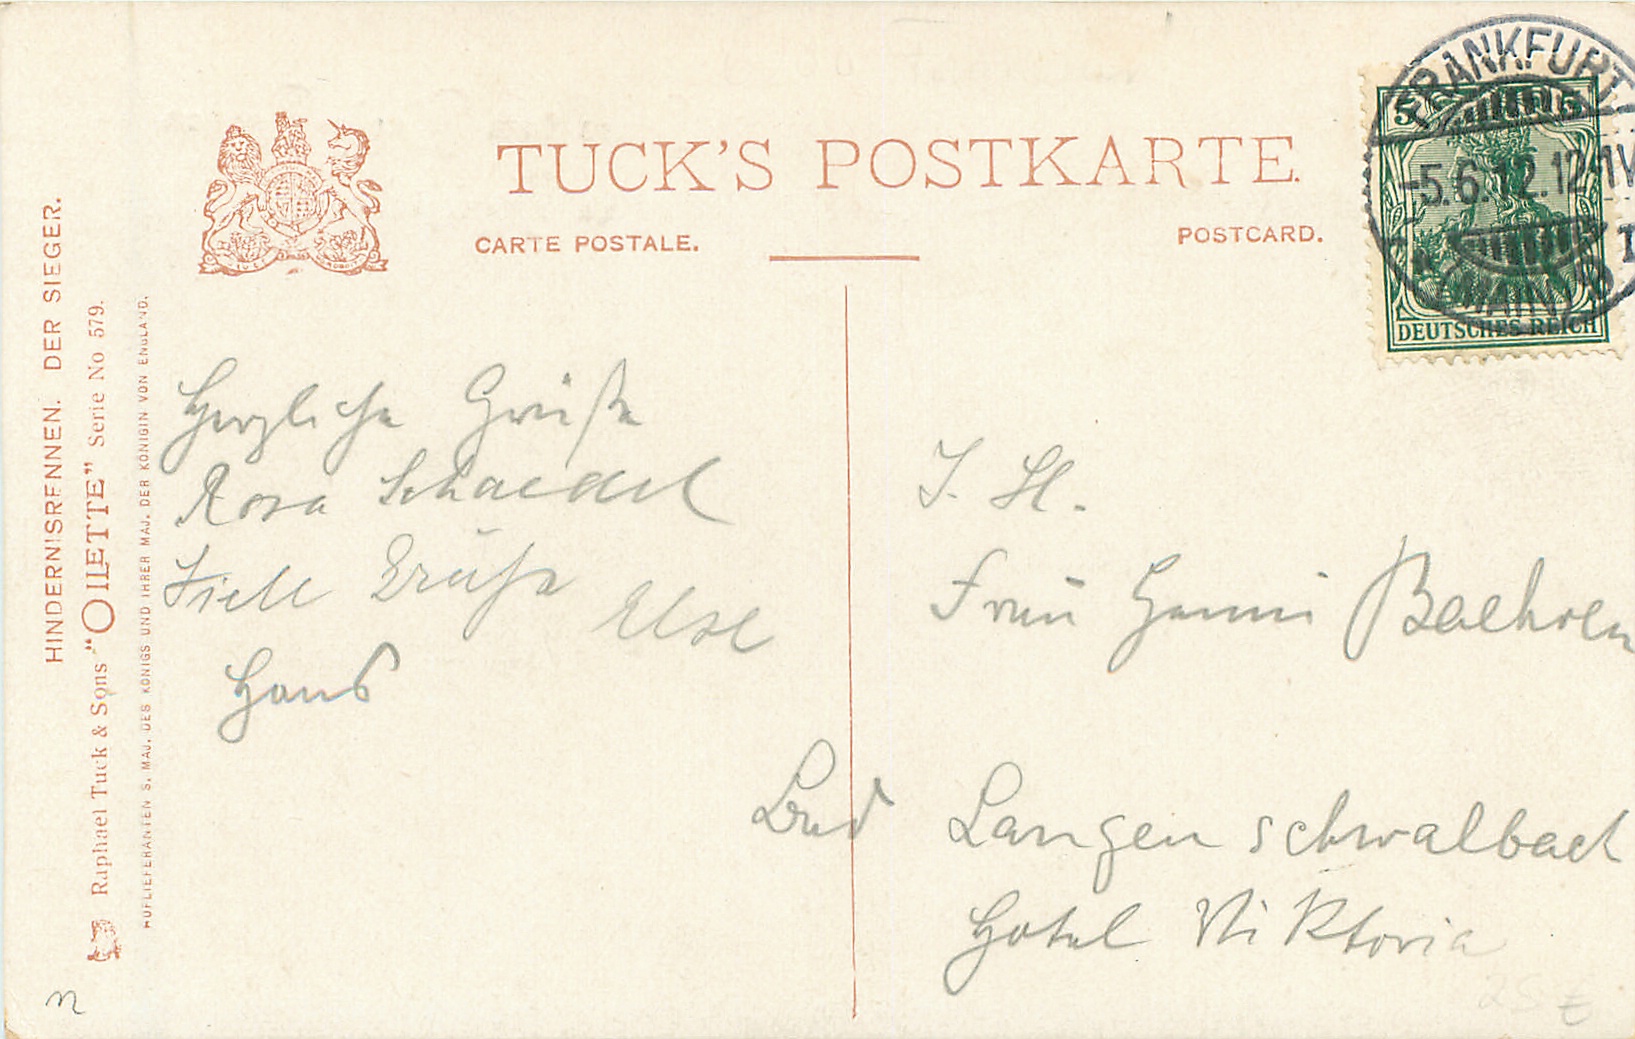 TUCK'S POSTKARTE.
CARTE POSTALE.
POSTCARD.
HINDERNISRENNEN. DER SIEGER.
Raphael Tuck & Sons "OILETTE" Serie No 579.
HOFLIEFERANTEN S. MAJ. DES KÖNIGS UND IHRER MAJ. DER KÖNIGIN VON ENGLAND.
FRANKFURT
5
-5.6.12.12-1V
(MAIN)
DEUTSCHES REICH
Herzliche Grüße
Rosa Schaedel
Viele Grüße Else
Hans
Frau Henni
Bad Langenschwalbach
Hotel Viktoria
n